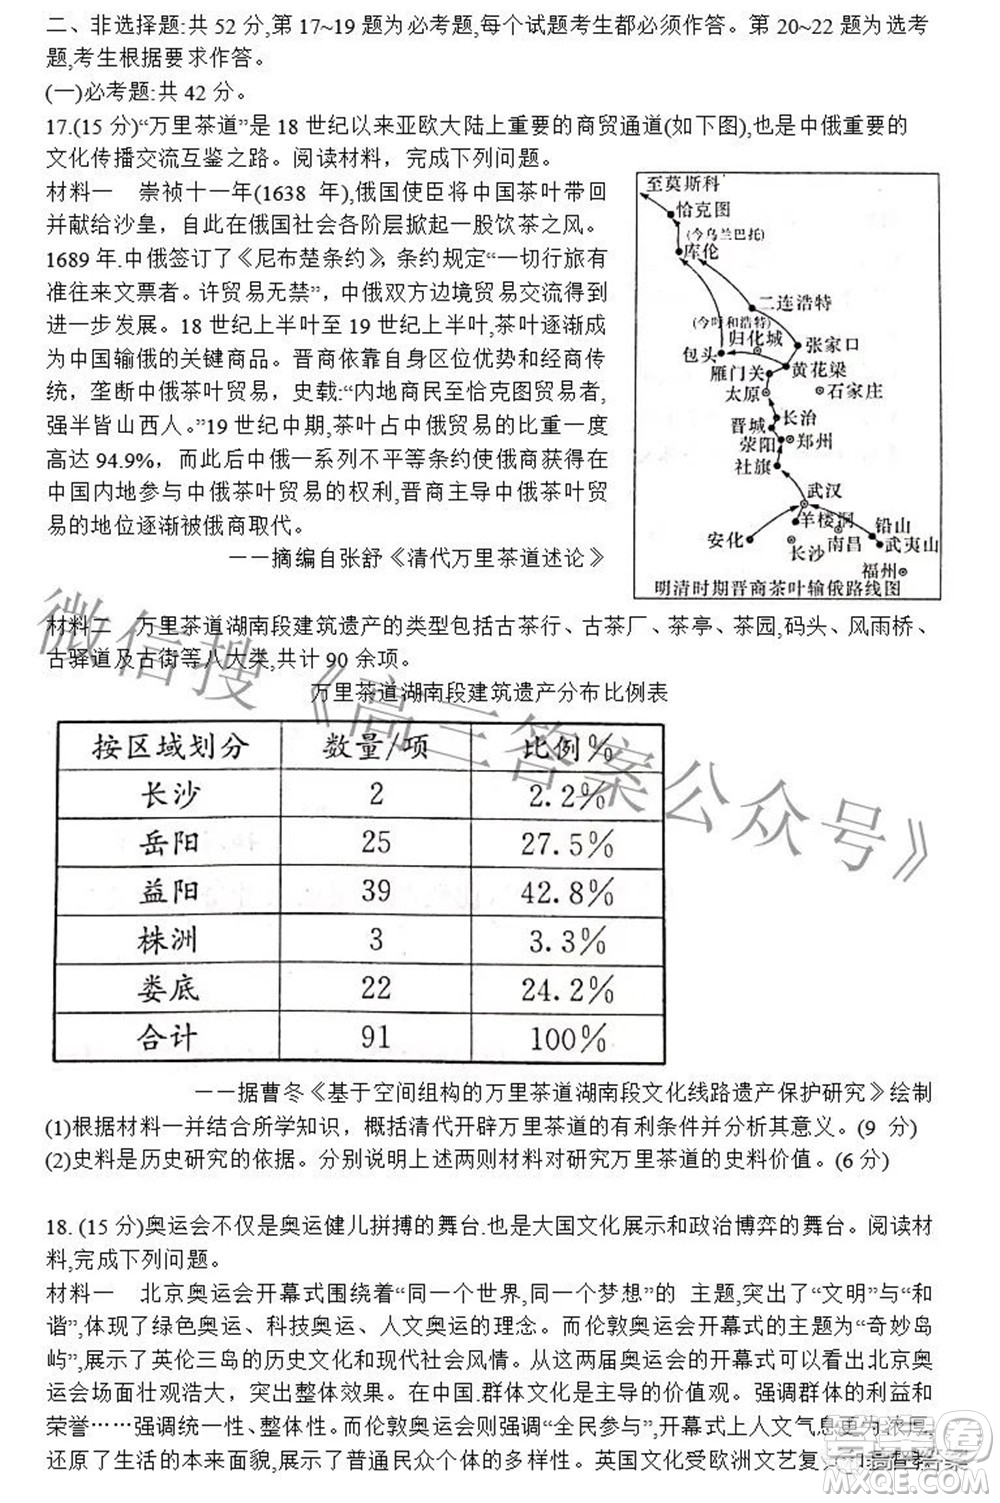 二、非选择题:共 52 分,第 17~19 题为必考题,每个试题考生都必须作答。第 20~22 题为选考
题,考生根据要求作答。
(一)必考题:共 42 分。
17.(15 分)“万里茶道”是 18 世纪以来亚欧大陆上重要的商贸通道(如下图),也是中俄重要的
文化传播交流互鉴之路。阅读材料，完成下列问题。
材料一 崇祯十一年(1638 年),俄国使臣将中国茶叶带回
并献给沙皇，自此在俄国社会各阶层掀起一股饮茶之风。
1689 年.中俄签订了《尼布楚条约》,条约规定“一切行旅有
准往来文票者。许贸易无禁”,中俄双方边境贸易交流得到
进一步发展。18 世纪上半叶至 19 世纪上半叶,茶叶逐渐成
为中国输俄的关键商品。晋商依靠自身区位优势和经商传
统，垄断中俄茶叶贸易，史载:“内地商民至恰克图贸易者，
强半皆山西人。”19 世纪中期,茶叶占中俄贸易的比重一度
高达 94.9%，而此后中俄一系列不平等条约使俄商获得在
中国内地参与中俄茶叶贸易的权利,晋商主导中俄茶叶贸
易的地位逐渐被俄商取代。
——摘编自张舒《清代万里茶道述论》
至莫斯科
恰克图
(今乌兰巴托)
库伦
二连浩特
(今呼和浩特)
归化城
张家口
包头
雁门关
黄花梁
太原
石家庄
长治
晋城
荥阳
郑州
社旗
武汉
羊楼洞
铅山
安化
南昌
武夷山
长沙
福州
明清时期晋商茶叶输俄路线图
材料二 万里茶道湖南段建筑遗产的类型包括古茶行、古茶厂、茶亭、茶园,码头、风雨桥、
古驿道及古街等八大类,共计 90 余项。
万里茶道湖南段建筑遗产分布比例表
按区域划分 数量/项 比例%
长沙 2 2.2%
岳阳 25 27.5%
益阳 39 42.8%
株洲 3 3.3%
娄底 22 24.2%
合计 91 100%
——据曹冬《基于空间组构的万里茶道湖南段文化线路遗产保护研究》绘制
(1)根据材料一并结合所学知识，概括清代开辟万里茶道的有利条件并分析其意义。(9 分)
(2)史料是历史研究的依据。分别说明上述两则材料对研究万里茶道的史料价值。(6 分)
18. (15 分)奥运会不仅是奥运健儿拼搏的舞台.也是大国文化展示和政治博弈的舞台。阅读材
料,完成下列问题。
材料一 北京奥运会开幕式围绕着“同一个世界,同一个梦想”的 主题,突出了“文明”与“和
谐”,体现了绿色奥运、科技奥运、人文奥运的理念。而伦敦奥运会开幕式的主题为“奇妙岛
屿”,展示了英伦三岛的历史文化和现代社会风情。从这两届奥运会的开幕式可以看出北京奥
运会场面壮观浩大，突出整体效果。在中国.群体文化是主导的价值观。强调群体的利益和
荣誉……强调统一性、整体性。而伦敦奥运会则强调“全民参与”,开幕式上人文气息更为浓厚,
还原了生活的本来面貌,展示了普通民众个体的多样性。英国文化受欧洲文艺复
微信搜《高三答案公众号》